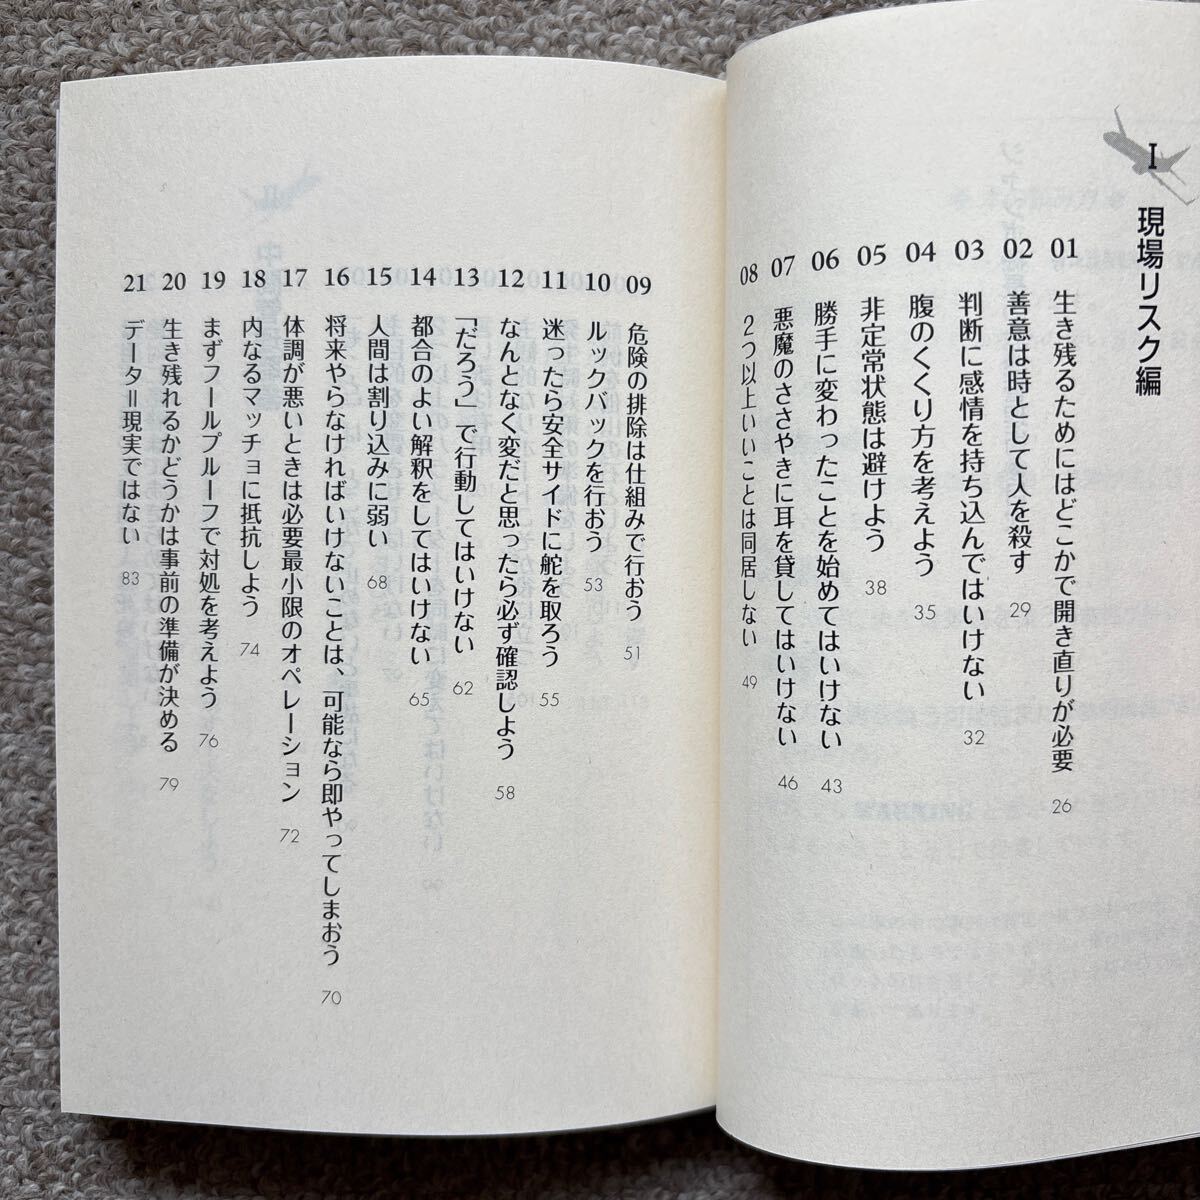 I 現場リスク編
01 生き残るためにはどこかで開き直りが必要 26
02 善意は時として人を殺す 29
03 判断に感情を持ち込んではいけない 32
04 腹のくくり方を考えよう 35
05 非定常状態は避けよう 38
06 勝手に変わったことを始めてはいけない 43
07 悪魔のささやきに耳を貸してはいけない 46
08 2つ以上いいことは同居しない 49
09 危険の排除は仕組みで行おう 51
10 ルックバックを行おう 53
11 迷ったら安全サイドに舵を取ろう 55
12 なんとなく変だと思ったら必ず確認しよう 58
13 「だろう」で行動してはいけない 62
14 都合のよい解釈をしてはいけない 65
15 人間は割り込みに弱い 68
16 将来やらなければいけないことは、可能なら即やってしまおう 70
17 体調が悪いときは必要最小限のオペレーション 72
18 内なるマッチョに抵抗しよう 74
19 まずフールプルーフで対処を考えよう 76
20 生き残れるかどうかは事前の準備が決める 79
21 データ=現実ではない 83